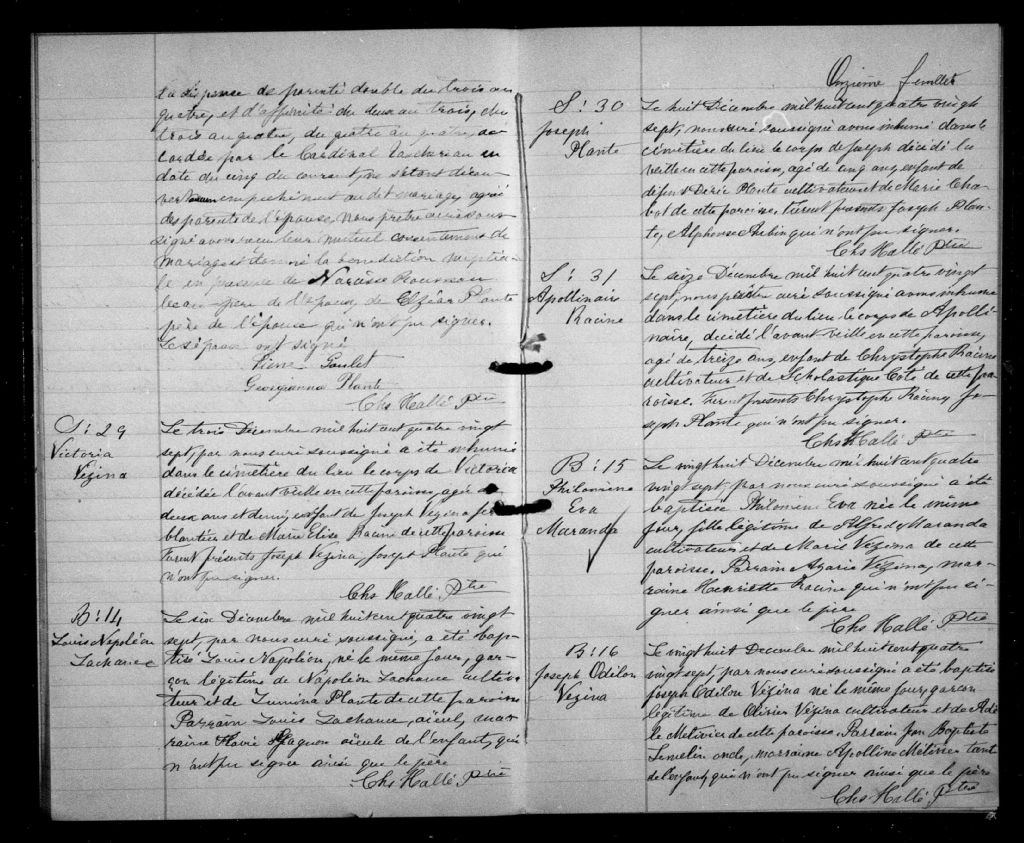 la dispense de parenté double du trois au
quatre, et d'affinité du deux au trois, du
trois au quatre, du quatre au quatre, ac-
cordée par le Cardinal Taschereau en
date du cinq du courant, ne s'étant décou-
vert aucun empêchement au dit mariage, agréé
des parents de l'épouse. Nous prêtre curé sous-
signé avons reçu leur mutuel consentement de
mariage et donné la bénédiction nuptia-
le en présence de Narcisse
père de l'époux, de Elzéar Plante
père de l'épouse qui n'ont pu signer.
Les époux ont signé
Pierre Goulet
Georgianna Plante
Chs Hallé Ptre
S: 29
Victoria
Vézina
Le trois Décembre mil huit cent quatre vingt
sept, par nous curé soussigné a été inhumé
dans le cimetière du lieu le corps de Victoria
décédée l'avant veille en cette paroisse, agée de
deux ans et demi, enfant de Joseph Vézina fer-
blantier et de Marie Elise Racine de cette paroisse
Furent présents Joseph Vézina, Joseph Plante qui
n'ont pu signer.
Chs Hallé Ptre
B: 14
Louis Napoléon
Lachance
Le six Décembre mil huit cent quatre vingt
sept, par nous curé soussigné, a été bap-
tisé Louis Napoléon, né le même jour, gar-
çon légitime de Napoléon Lachance cultiva-
teur et de Zumina Plante de cette paroisse
Parrain Louis Lachance, aïeul, mar-
raine Flavie Gagnon aïeule de l'enfant, qui
n'ont pu signer ainsi que le père
Chs Hallé Ptre
Onzième feuillet
S: 30
Joseph
Plante
Le huit Décembre mil huit cent quatre vingt
sept, nous curé soussigné avons inhumé dans le
cimetière du lieu le corps de Joseph décédé la
veille en cette paroisse, agé de cinq ans, enfant de
défunt Plante cultivateur et de Marie Cha-
bot de cette paroisse. Furent présents Joseph Plan-
te, Alphonse Aubin qui n'ont pu signer.
Chs Hallé Ptre
S: 31
Apollinaire
Racine
Le seize Décembre mil huit cent quatre vingt
sept, nous prêtre curé soussigné avons inhumé
dans le cimetière du lieu le corps de Apolli-
naire, décédé l'avant veille en cette paroisse,
agé de treize ans, enfant de Chrystophe Racine
cultivateur et de Scholastique Côté de cette pa-
roisse. Furent présents Chrystophe Racine, Jo-
seph Plante qui n'ont pu signer.
Chs Hallé Ptre
B: 15
Philomène
Eva
Maranda
Le vingt huit Décembre mil huit cent quatre
vingt sept, par nous curé soussigné a été
baptisée Philomène Eva née le même
jour, fille légitime de Alfred Maranda
cultivateur et de Marie Vézina de cette
paroisse. Parrain Azarie Vézina, mar-
raine Henriette Racine qui n'ont pu si-
gner ainsi que le père
Chs Hallé Ptre
B: 16
Joseph Odilon
Vézina
Le vingt huit Décembre mil huit cent quatre
vingt sept, par nous curé soussigné a été baptisé
Joseph Odilon Vézina né le même jour, garçon
légitime de Olivier Vézina cultivateur et de Adè-
le Métivier de cette paroisse. Parrain Jean Baptiste
Lemelin oncle, marraine Apolline Métivier tante
de l'enfant, qui n'ont pu signer ainsi que le père
Chs Hallé Ptre